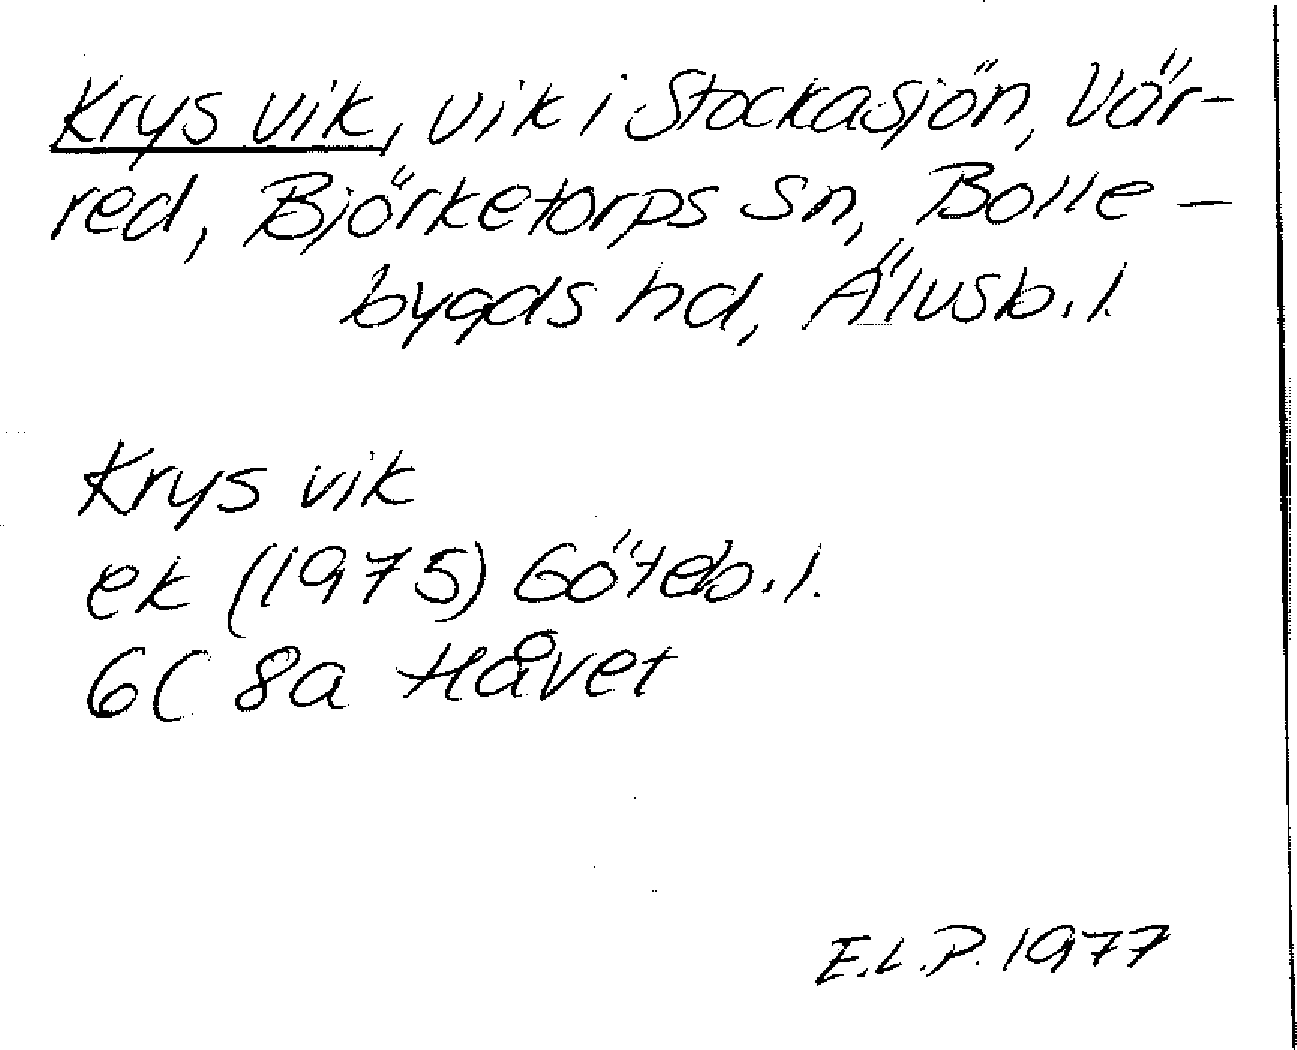 Krys vik, vik i Stockasjön, Vär-
red, Björketorps Sn, Bolle-
bygds hd, Älvsb.l.
Krys vik
ek (1975) Göteb.l.
6C 8a Håvet
E.L.P. 1977